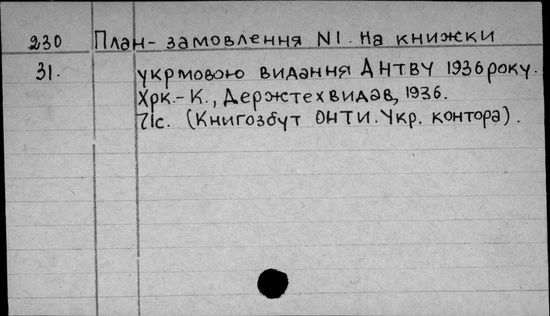 230 План-замовлення N1. На книжки
31. укрмовою видання ДНТВУ 1936 року.
Хрк.-К., Держтехвидав, 1936.
71с. (Книгозбут ОНТИ. Укр. контора).